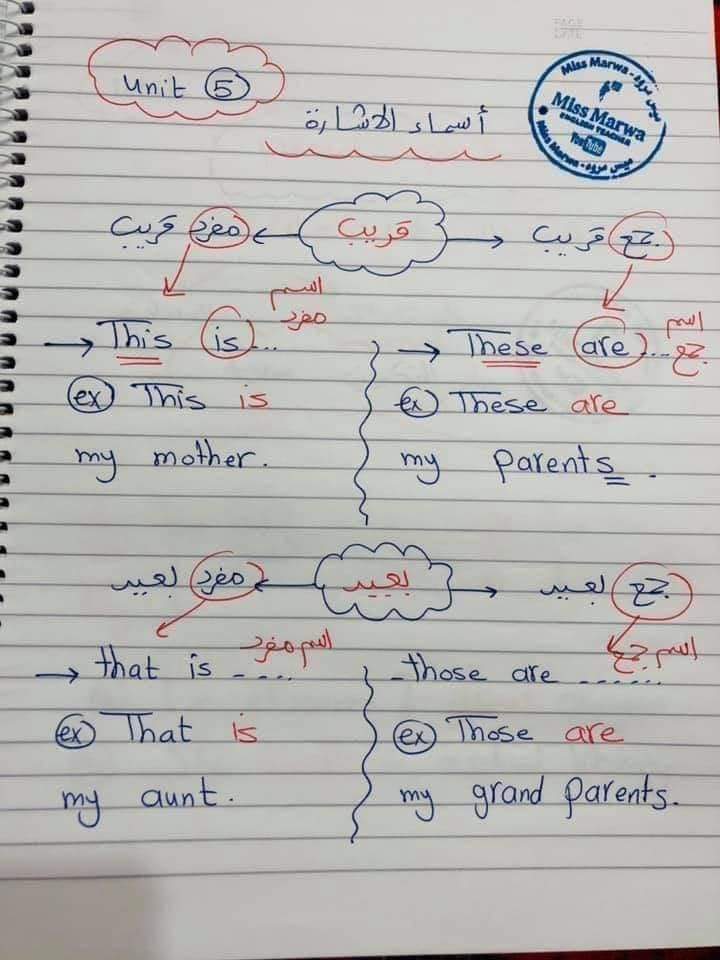 PAGE
DATE
Unit 5
Miss Marwa - ميس مروه
Miss Marwa
ENGLISH TEACHER
YouTube
Miss Marwa - ميس مروه
أسماء الاشارة
مفرد قريب ← قريب → جمع قريب
→ This is ... اسم مفرد
→ These are ... اسم جمع
ex This is
my mother.
ex These are
my parents.
مفرد بعيد ← بعيد → جمع بعيد
→ that is ---- اسم مفرد
- those are ------ اسم جمع
ex That is
my aunt.
ex Those are
my grand parents.